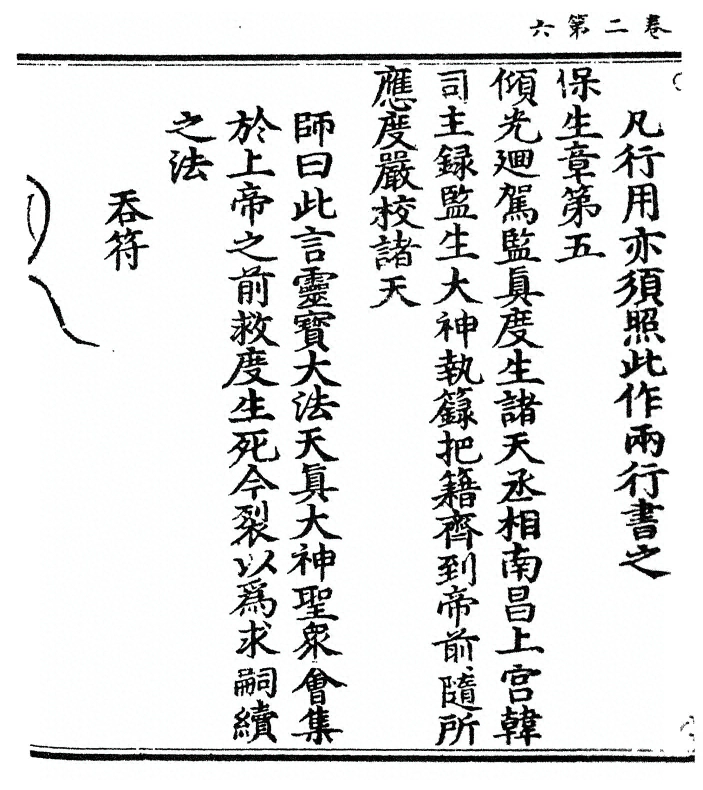 卷二第六
凡行用亦須照此作兩行書之
保生章第五
傾光廻駕監眞度生諸天丞相南昌上宮韓
司主録監生大神執籙把籍齊到帝前隨所
應度嚴校諸天
師曰此言靈寶大法天眞大神聖衆會集
於上帝之前救度生死今裂以爲求嗣續
之法
吞符